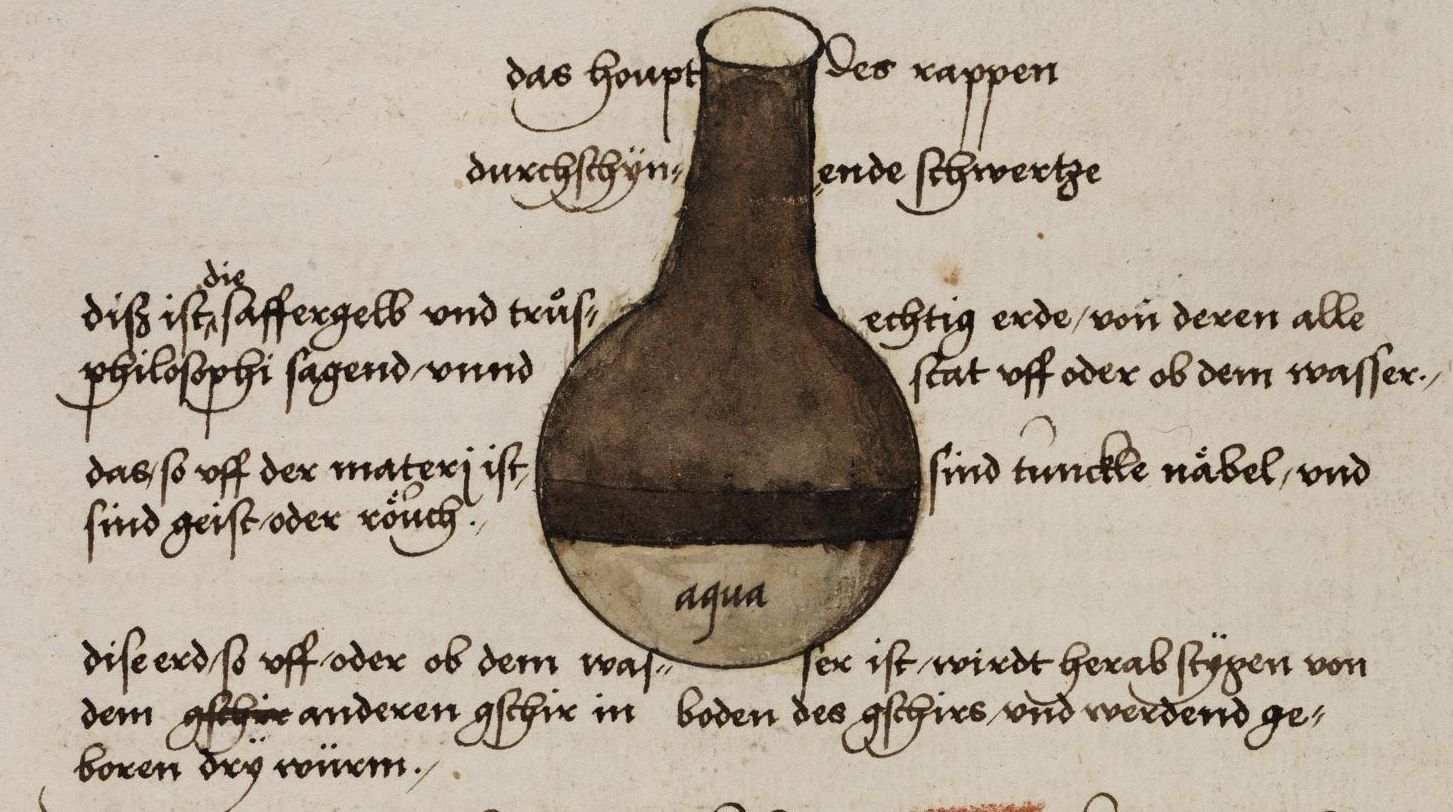 das houpt des rappen
durchschÿn⸗ ende schwertze
die
disz ist saffergelb vnd trůs⸗ echtig erde, von deren alle
philosophi sagend, vnnd stat vff oder ob dem wasser.
das, so vff der materj ist, sind tunckle nåbel, vnd
sind geist, oder röuch.
aqua
dise erd, so vff, oder ob dem was⸗ ser ist, wirdt herab stÿgen von
dem gschir anderen gschir in boden des gschirs, vnd werdend ge⸗
boren drÿ würm.